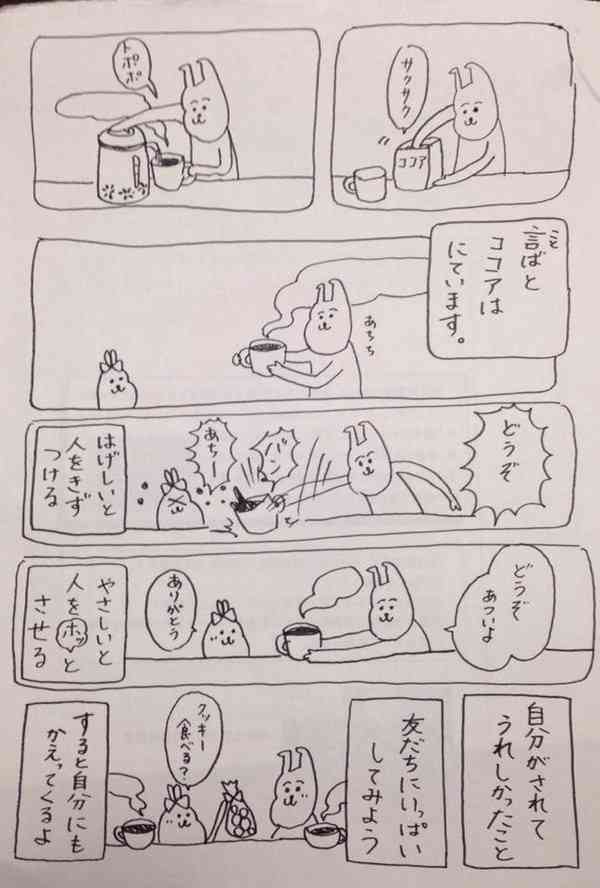 サクサク
ココア
トポポポ
言ばと
こと
ココアは
にています。
あちち
どうぞ
バン
あちー
はげしいと
人をきず
つける
どうぞ
あついよ
ありがとう
やさしいと
人をホッと
させる
自分がされて
うれしかったこと
友だちにいっぱい
してみよう
クッキー
食べる？
すると自分にも
かえってくるよ